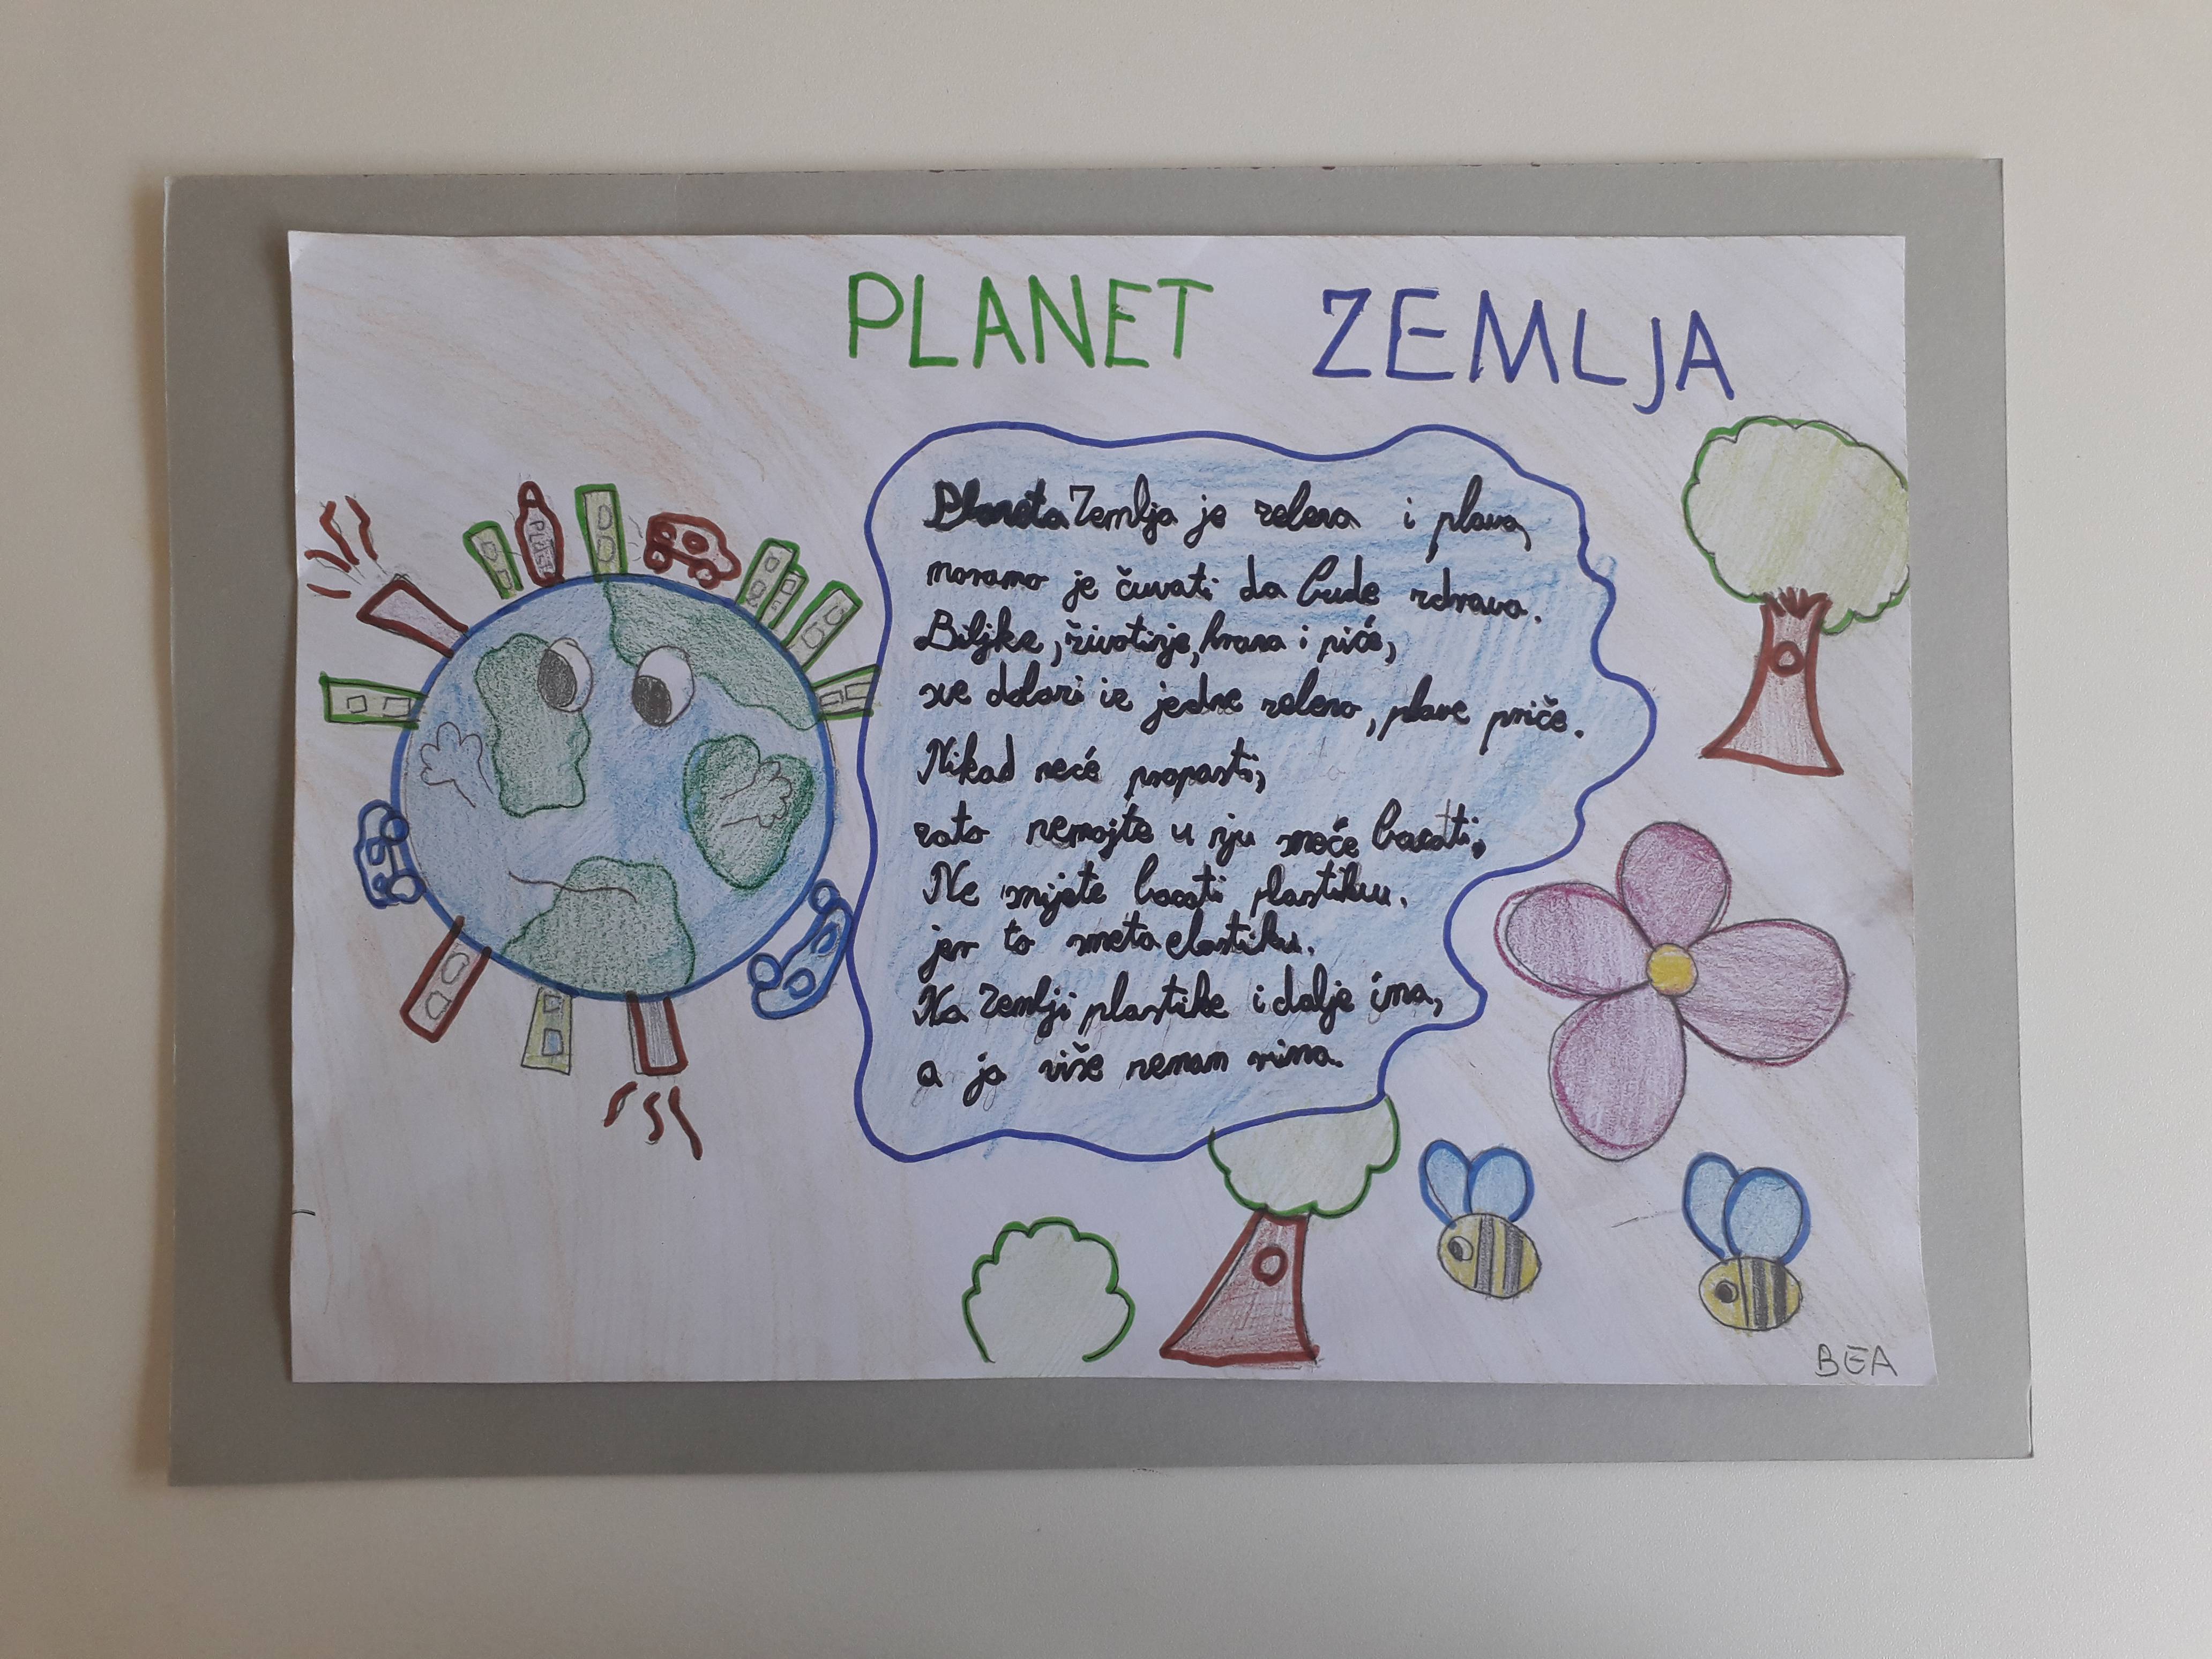 PLANET ZEMLJA
Planeta Zemlja je zelena i plava,
moramo je čuvati da bude zdrava.
Biljke, životinje, hrana i piće,
sve dolazi iz jedne zeleno, plave priče.
Nikad neće propasti,
zato nemojte u nju smeće bacati,
Ne smijete bacati plastiku.
jer to smeta elastiku.
Na Zemlji plastike i dalje ima,
a ja više nemam rima.
BEA